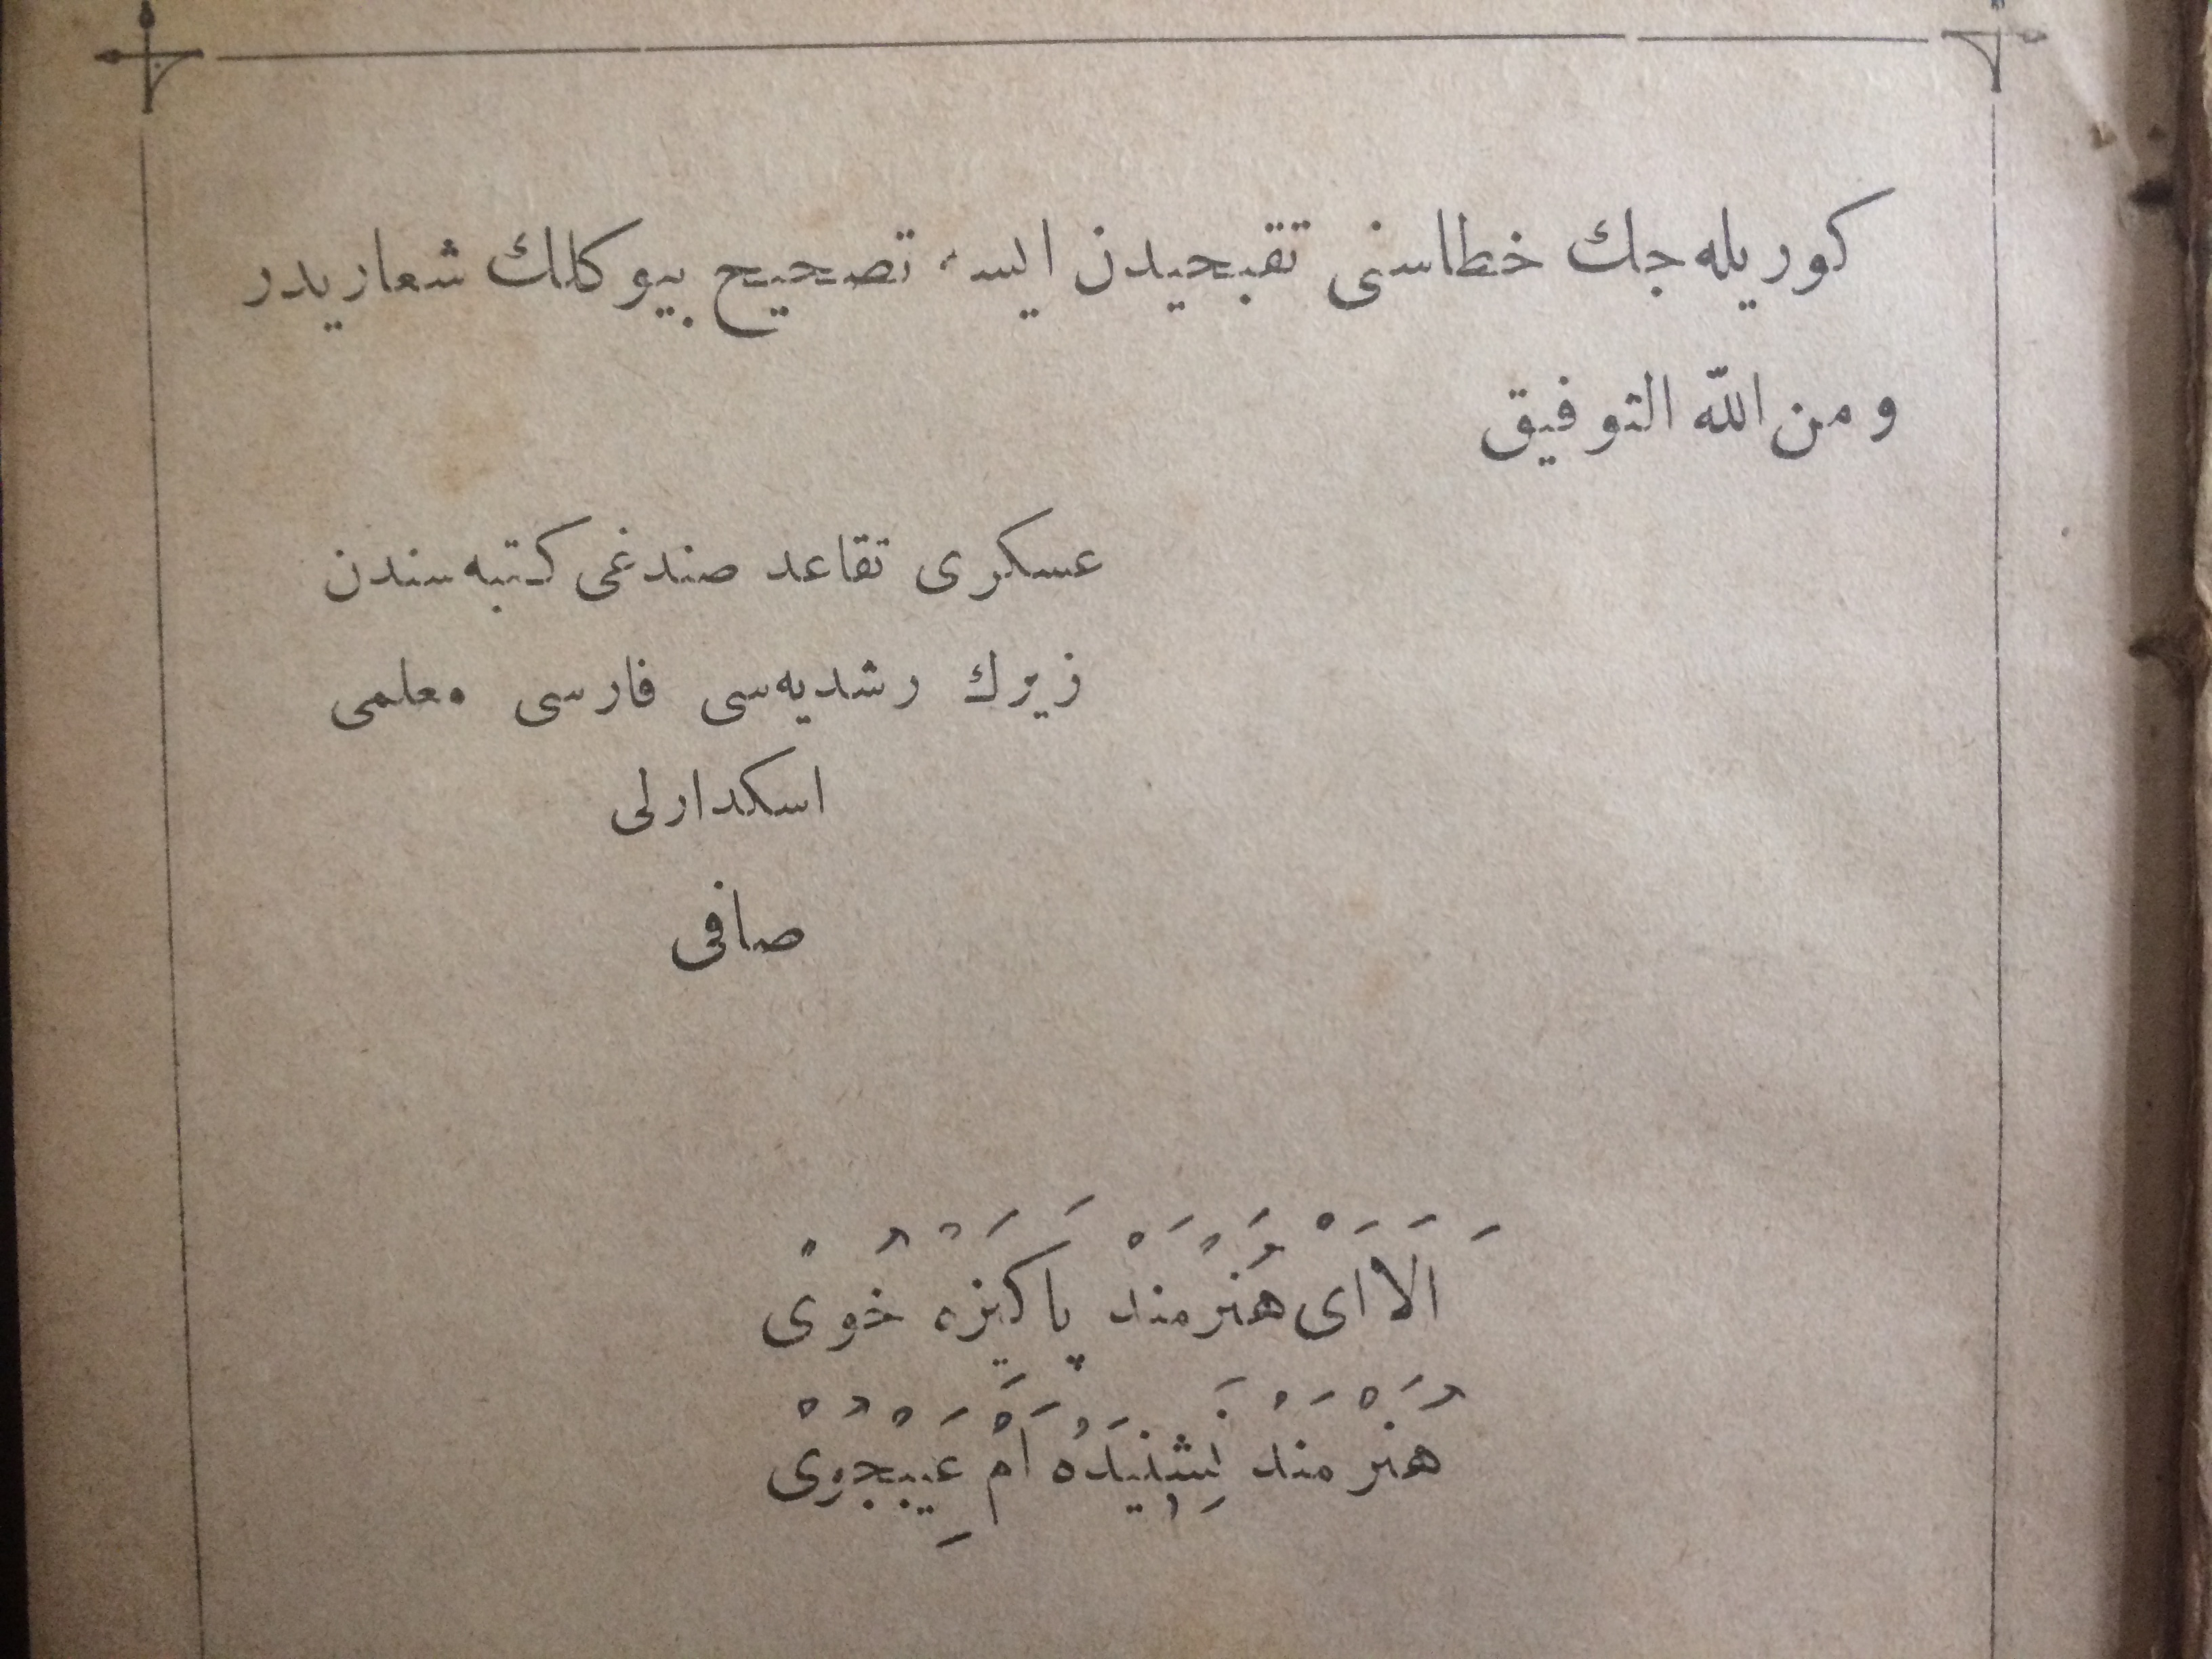 كوريله‌جك خطاسنى تقبحيدن ايسه تصحيح بيوكلك شعاريدر
و من الله التوفيق
عسكرى تقاعد صندغى كتبه‌سندن
زيرك رشديه‌سى فارسى معلمى
اسكدارلى
صافى
اَلَا اَىْ هُنَرْمَنْد پَاكِيزَه خُوىْ
هُنَرْمَنْد نَشِنِيدَه اَمْ عَيْبْجُوىْ